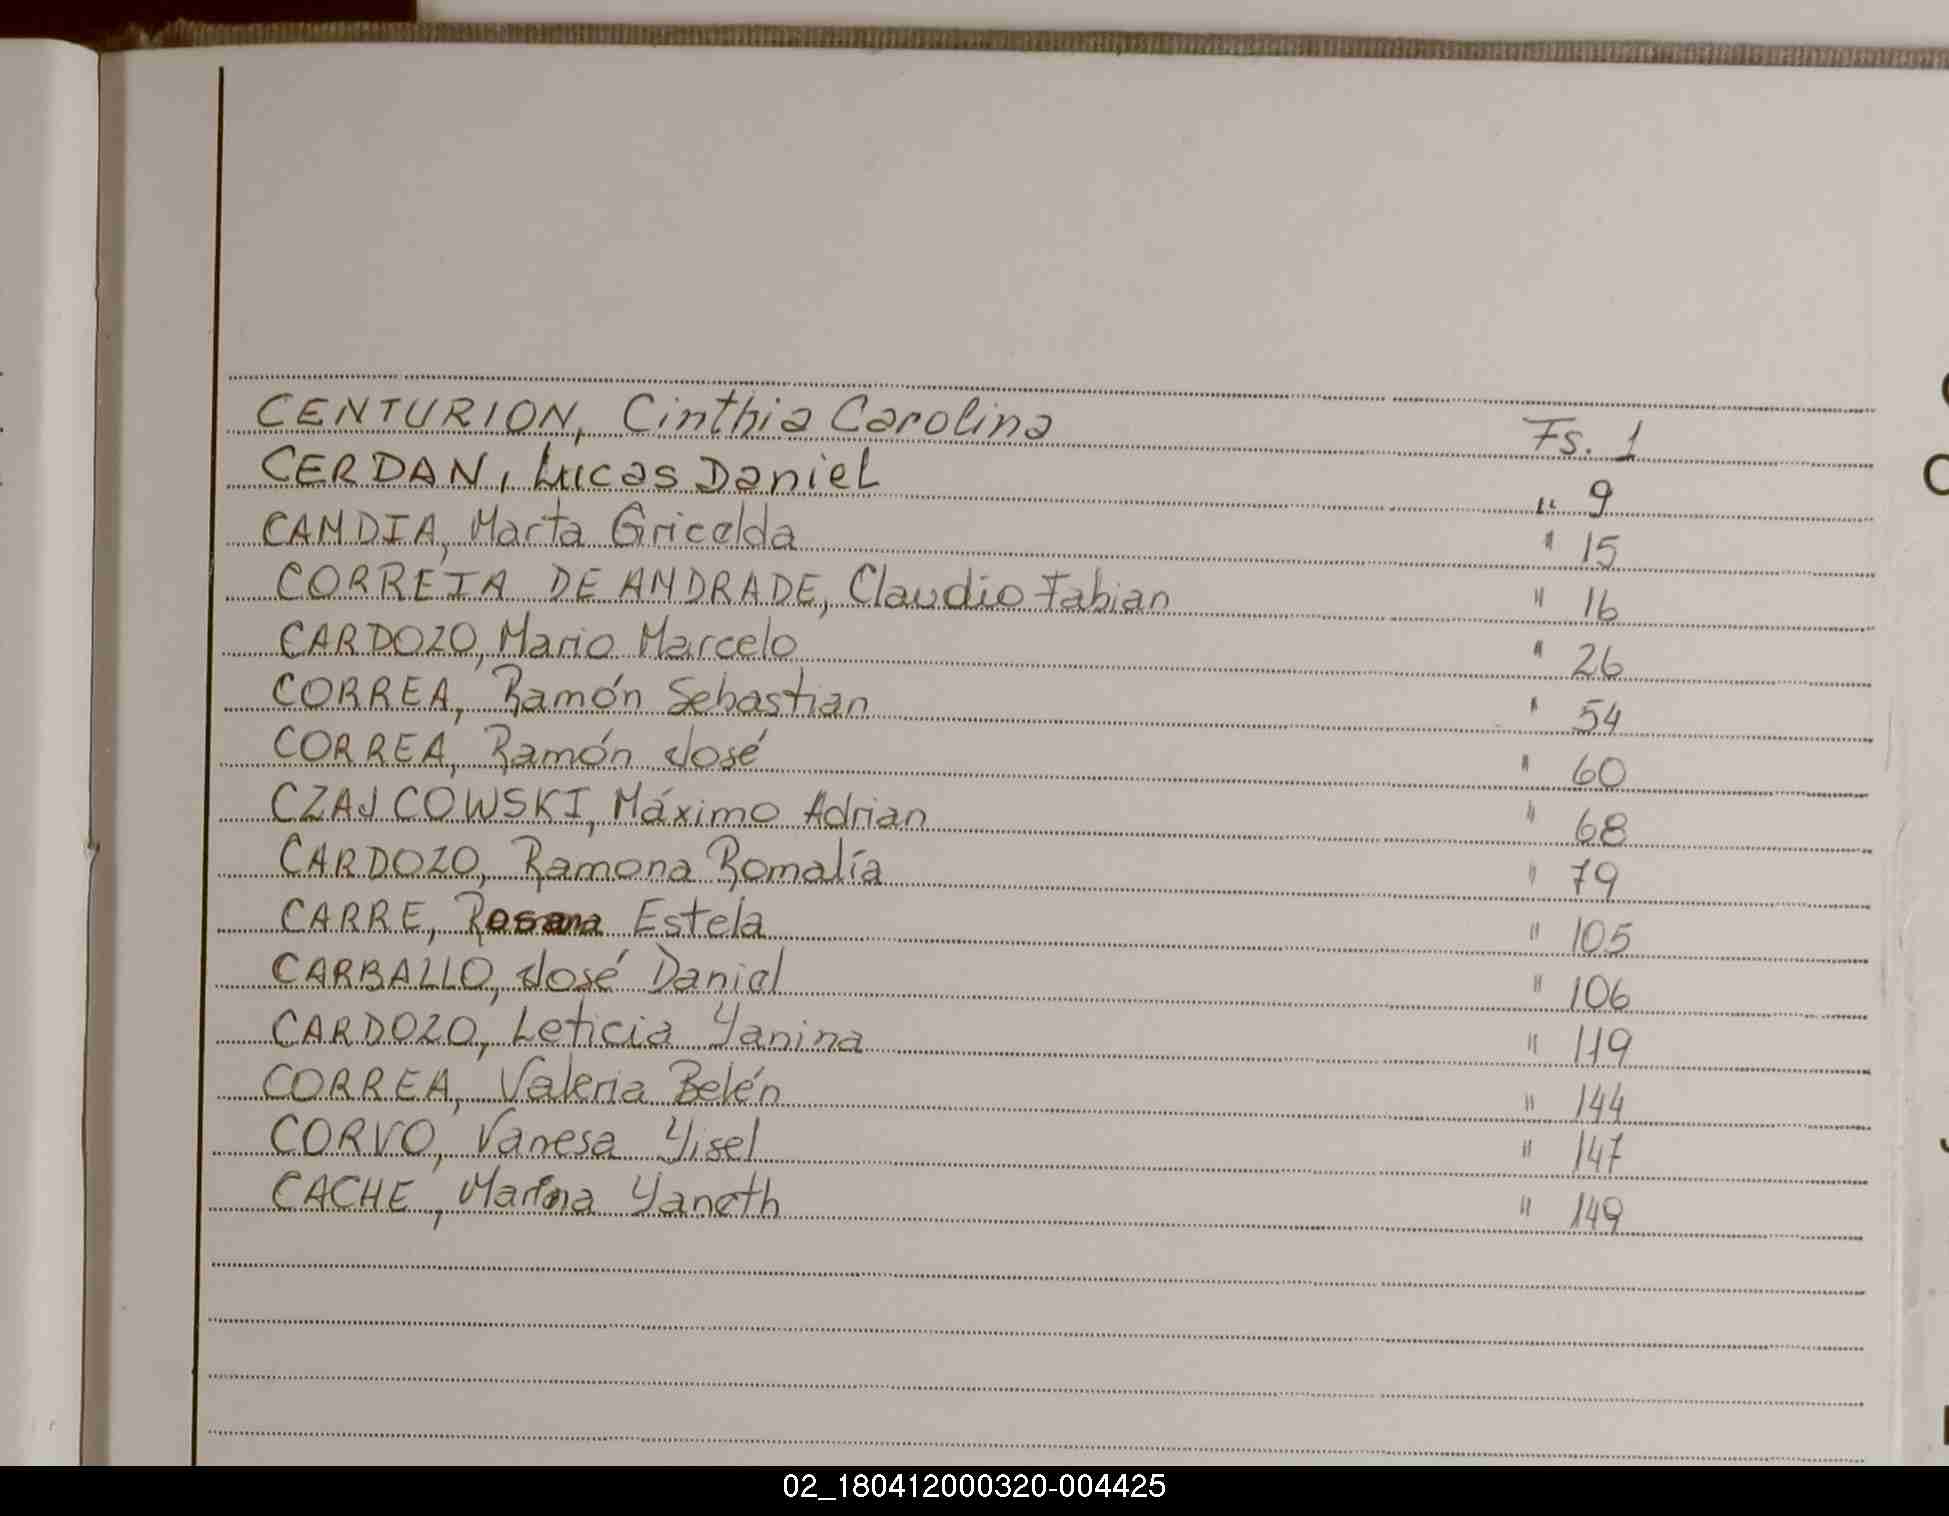 CENTURION, Cinthia Carolina Fs. 1
CERDAN, Lucas Daniel " 9
CANDIA, Marta Gricelda " 15
CORREIA DE ANDRADE, Claudio Fabian " 16
CARDOZO, Mario Marcelo " 26
CORREA, Ramón Sebastian " 54
CORREA, Ramón José " 60
CZAJCOWSKI, Máximo Adrian " 68
CARDOZO, Ramona Romalía " 79
CARRE, Rosana Estela " 105
CARBALLO, José Daniel " 106
CARDOZO, Leticia Yanina " 119
CORREA, Valeria Belén " 144
CORVO, Vanesa Yisel " 147
CACHE, Marina Yaneth " 149
02_180412000320-004425